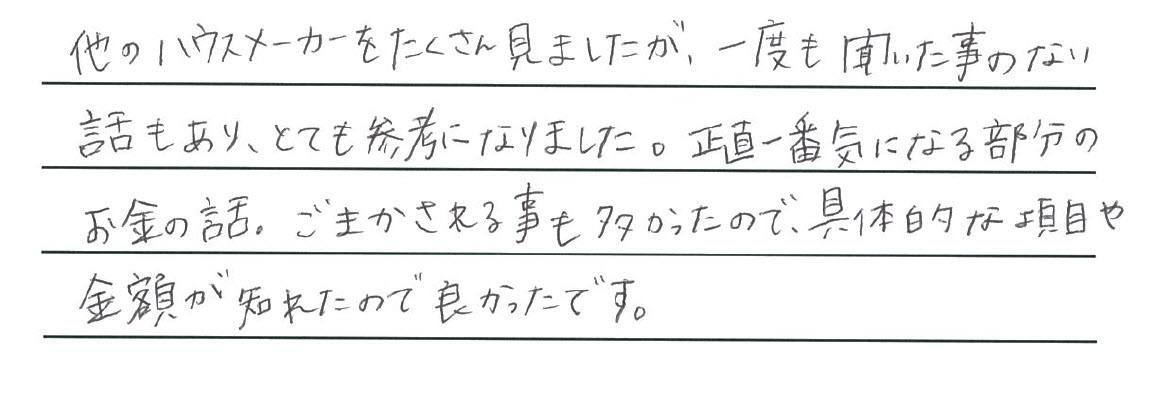 他のハウスメーカーをたくさん見ましたが、一度も聞いた事のない
話もあり、とても参考になりました。正直一番気になる部分の
お金の話。ごまかされる事も多かったので、具体的な項目や
金額が知れたので良かったです。